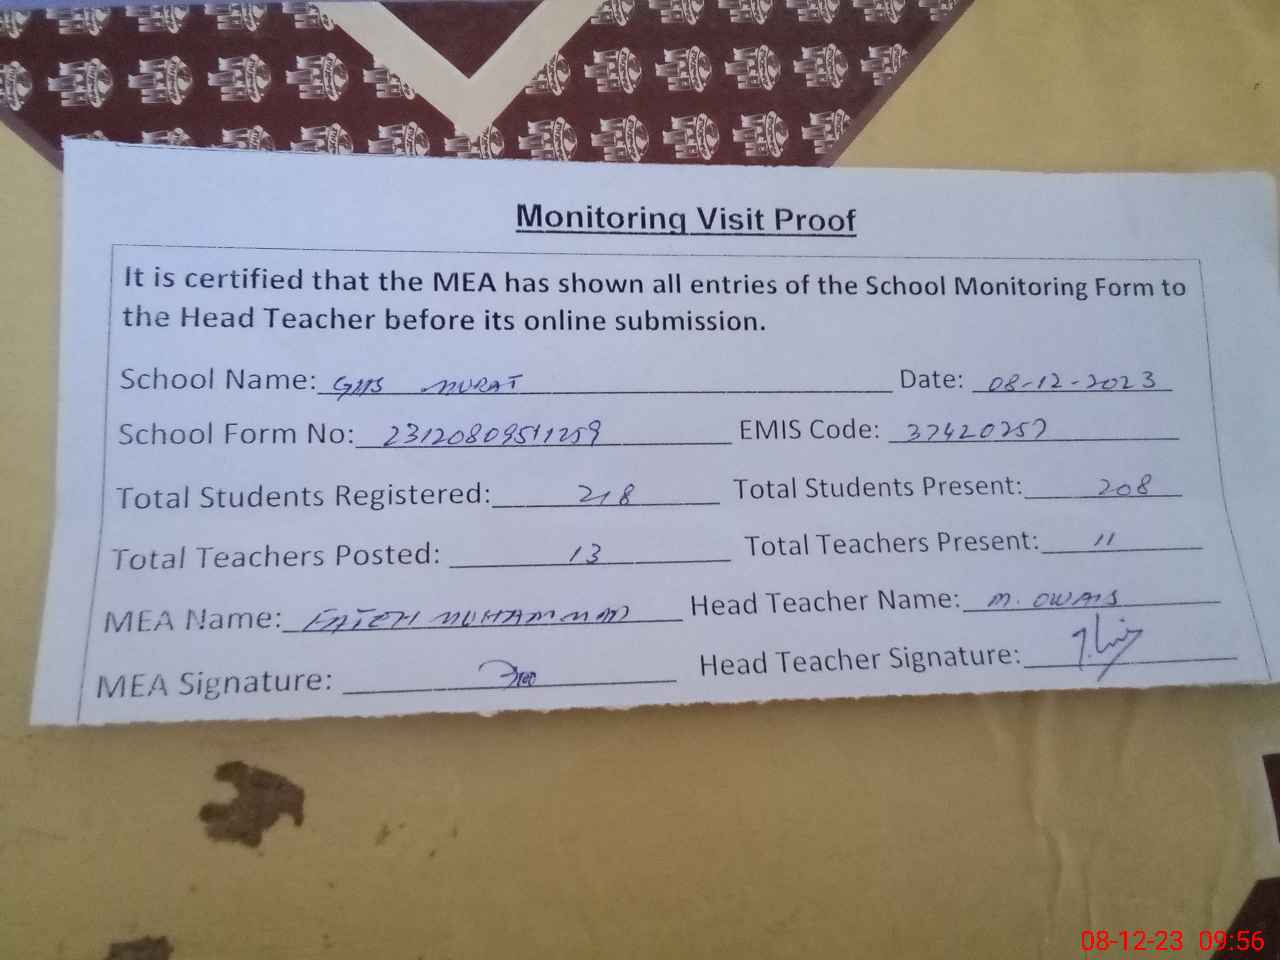 Monitoring Visit Proof
It is certified that the MEA has shown all entries of the School Monitoring Form to
the Head Teacher before its online submission.
School Name: GHS MURAT Date: 08-12-2023
School Form No: 23120809511259 EMIS Code: 37420257
Total Students Registered: 218 Total Students Present: 208
Total Teachers Posted: 13 Total Teachers Present: 11
MEA Name: FATEH MUHAMMAD Head Teacher Name: M. OWAIS
MEA Signature: Head Teacher Signature:
08-12-23 09:56